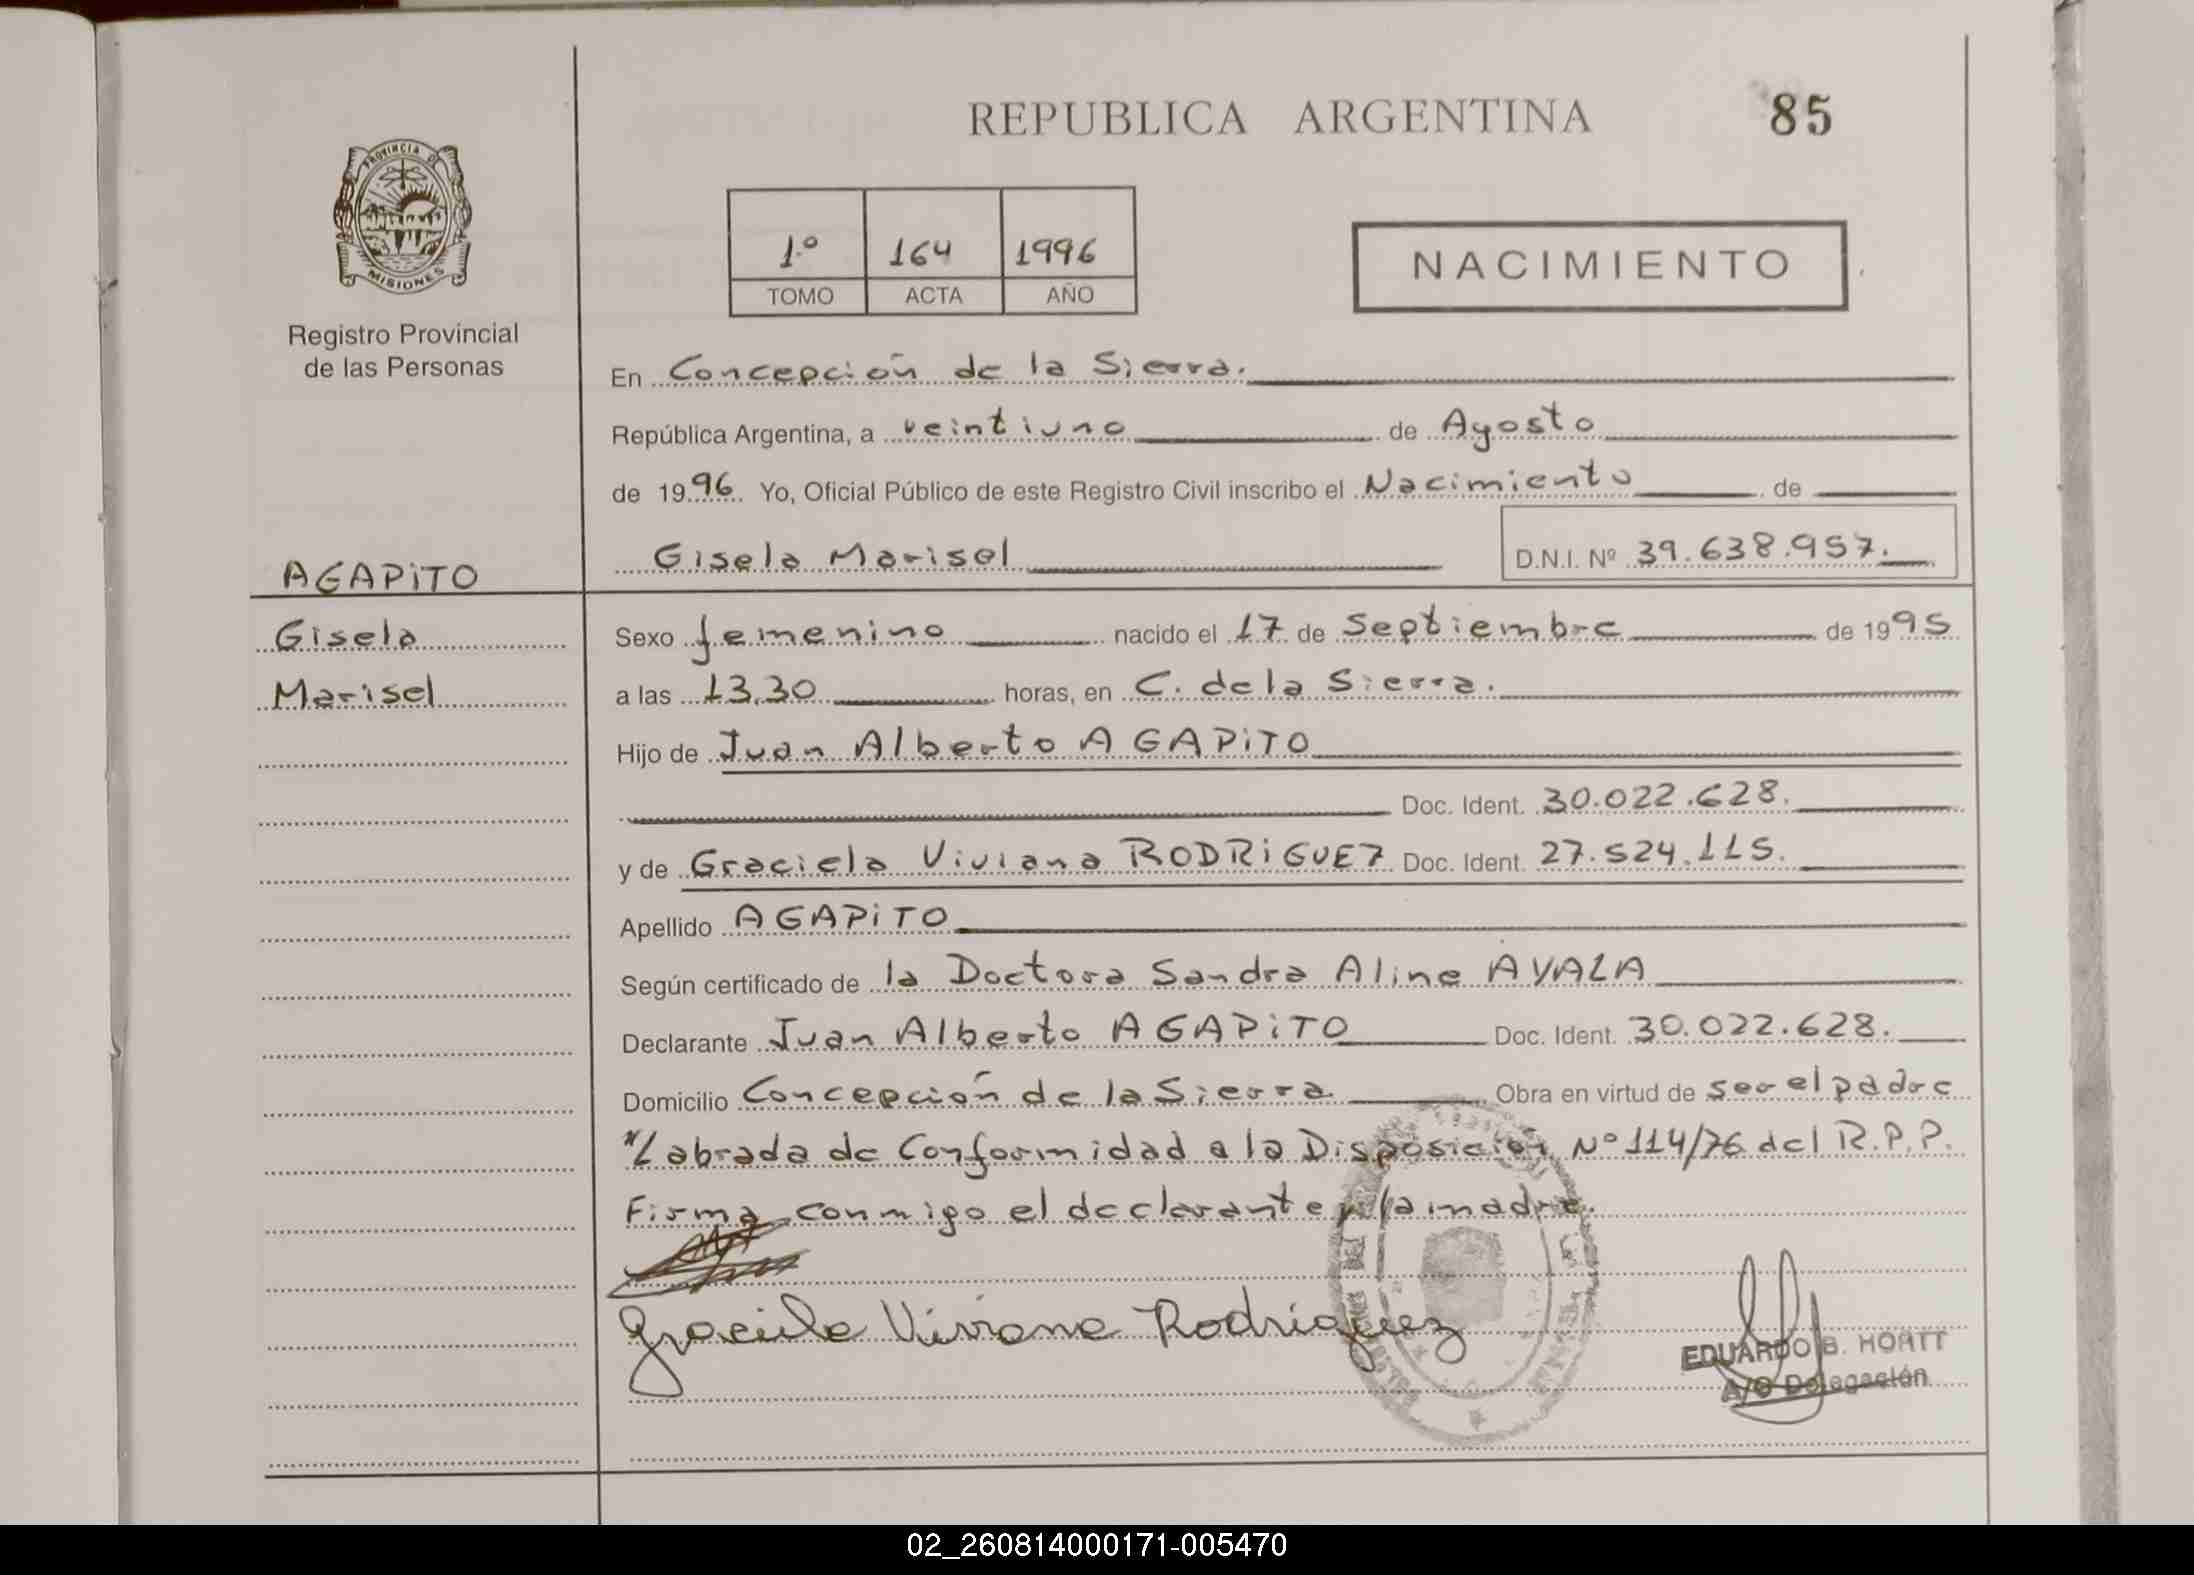 REPUBLICA ARGENTINA
85
PROVINCIA DE
MISIONES
Registro Provincial
de las Personas
1.º 164 1996
TOMO ACTA AÑO
NACIMIENTO
En Concepción de la Sierra.
República Argentina, a veintiuno de Agosto
de 1996. Yo, Oficial Público de este Registro Civil inscribo el Nacimiento de
Gisela Marisel D.N.I. Nº 39.638.957.
AGAPITO
Gisela
Marisel
Sexo femenino nacido el 17 de Septiembre de 1995
a las 13,30 horas, en C. de la Sierra.
Hijo de Juan Alberto AGAPITO
Doc. Ident. 30.022.628.
y de Graciela Viviana RODRIGUEZ Doc. Ident. 27.524.115.
Apellido AGAPITO
Según certificado de la Doctora Sandra Aline AYALA
Declarante Juan Alberto AGAPITO Doc. Ident. 30.022.628.
Domicilio Concepción de la Sierra Obra en virtud de ser el padre
"Labrada de Conformidad a la Disposición Nº 114/76 del R.P.P.
Firma conmigo el declarante y la madre.
Graciela Viviana Rodriguez
EDUARDO B. HORTT
A/C Delegación
02_260814000171-005470